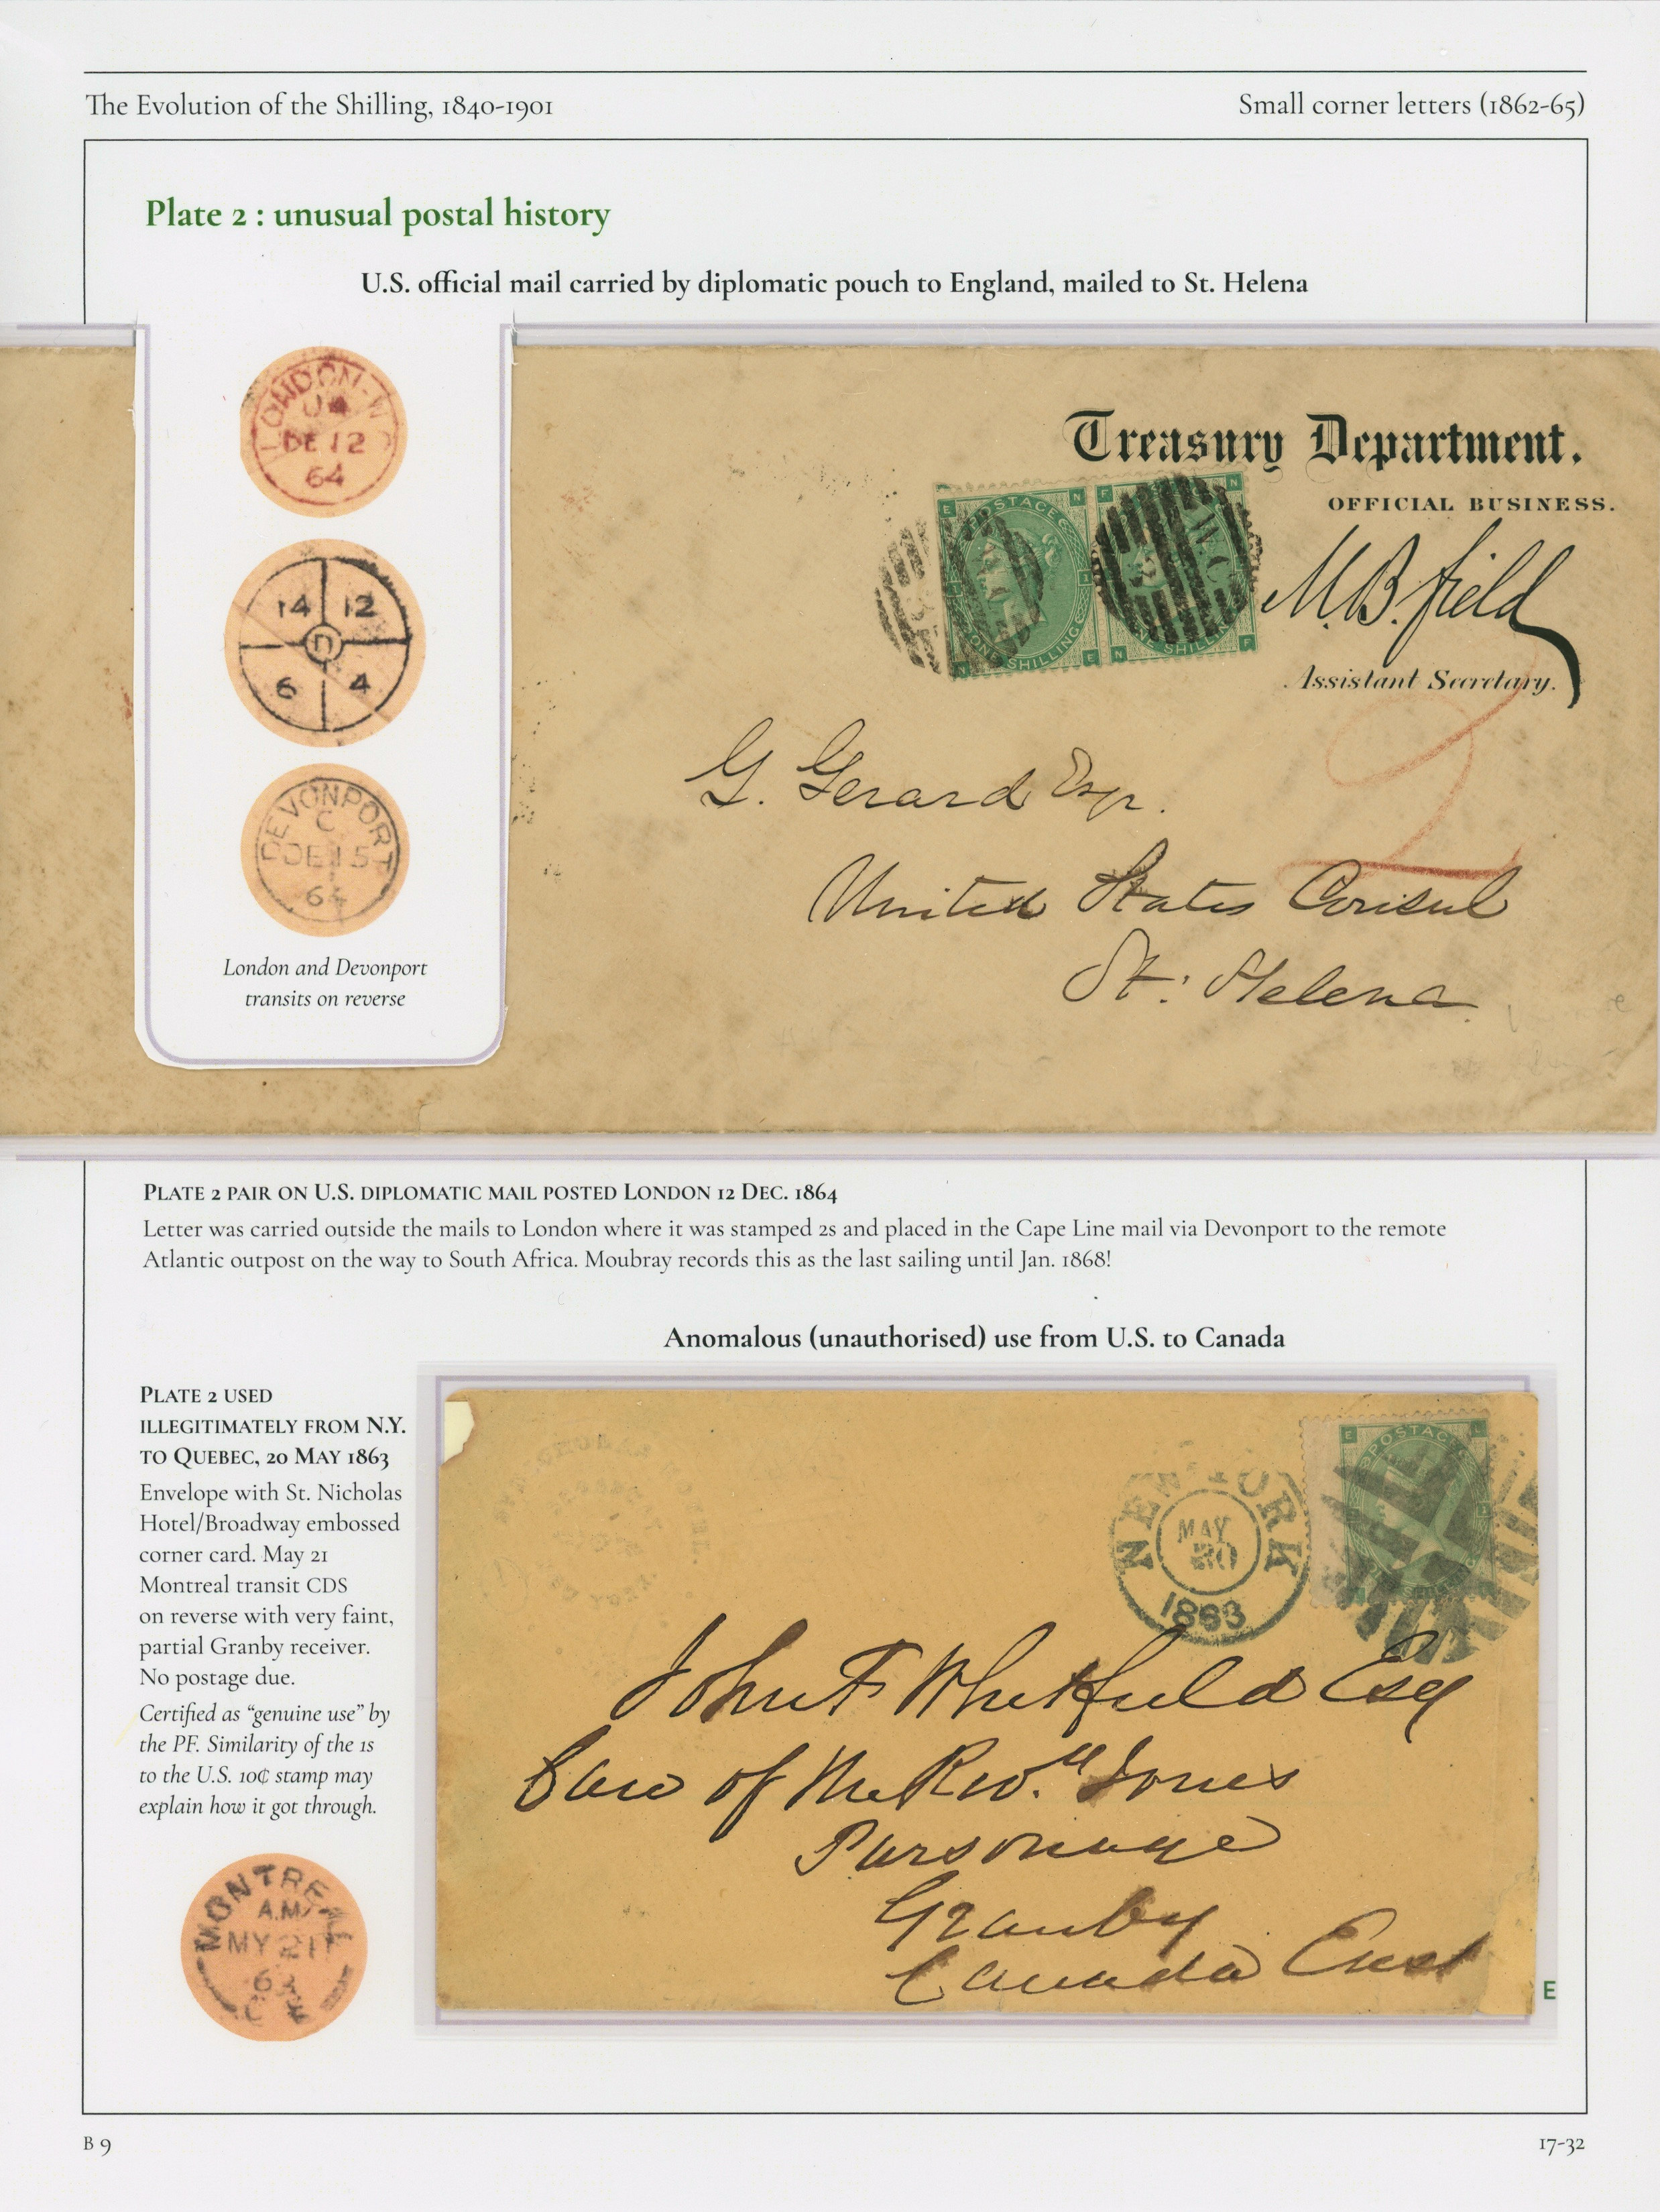 The Evolution of the Shilling, 1840-1901
Small corner letters (1862-65)
Plate 2 : unusual postal history
U.S. official mail carried by diplomatic pouch to England, mailed to St. Helena
LONDON-W
DE 12
64
14 12
D
6 4
DEVONPORT
C
DE 15
64
London and Devonport
transits on reverse
Treasury Department.
OFFICIAL BUSINESS.
M.B. Field
Assistant Secretary.
E N F N
POSTAGE
W.C
ONE SHILLING
N E N F
2
G. Gerard Esqr.
United States Consul
St: Helena
PLATE 2 PAIR ON U.S. DIPLOMATIC MAIL POSTED LONDON 12 DEC. 1864
Letter was carried outside the mails to London where it was stamped 2s and placed in the Cape Line mail via Devonport to the remote
Atlantic outpost on the way to South Africa. Moubray records this as the last sailing until Jan. 1868!
Anomalous (unauthorised) use from U.S. to Canada
PLATE 2 USED
ILLEGITIMATELY FROM N.Y.
TO QUEBEC, 20 MAY 1863
Envelope with St. Nicholas
Hotel/Broadway embossed
corner card. May 21
Montreal transit CDS
on reverse with very faint,
partial Granby receiver.
No postage due.
Certified as “genuine use” by
the PF. Similarity of the 1s
to the U.S. 10¢ stamp may
explain how it got through.
MONTREAL
A.M
MY 21
63
C E
NEW YORK
MAY
20
1863
E L
POSTAGE
John F Whitfield Esq
Care of the Revd Jones
Parsonage
Granby
Canada East
E
B 9
17-32